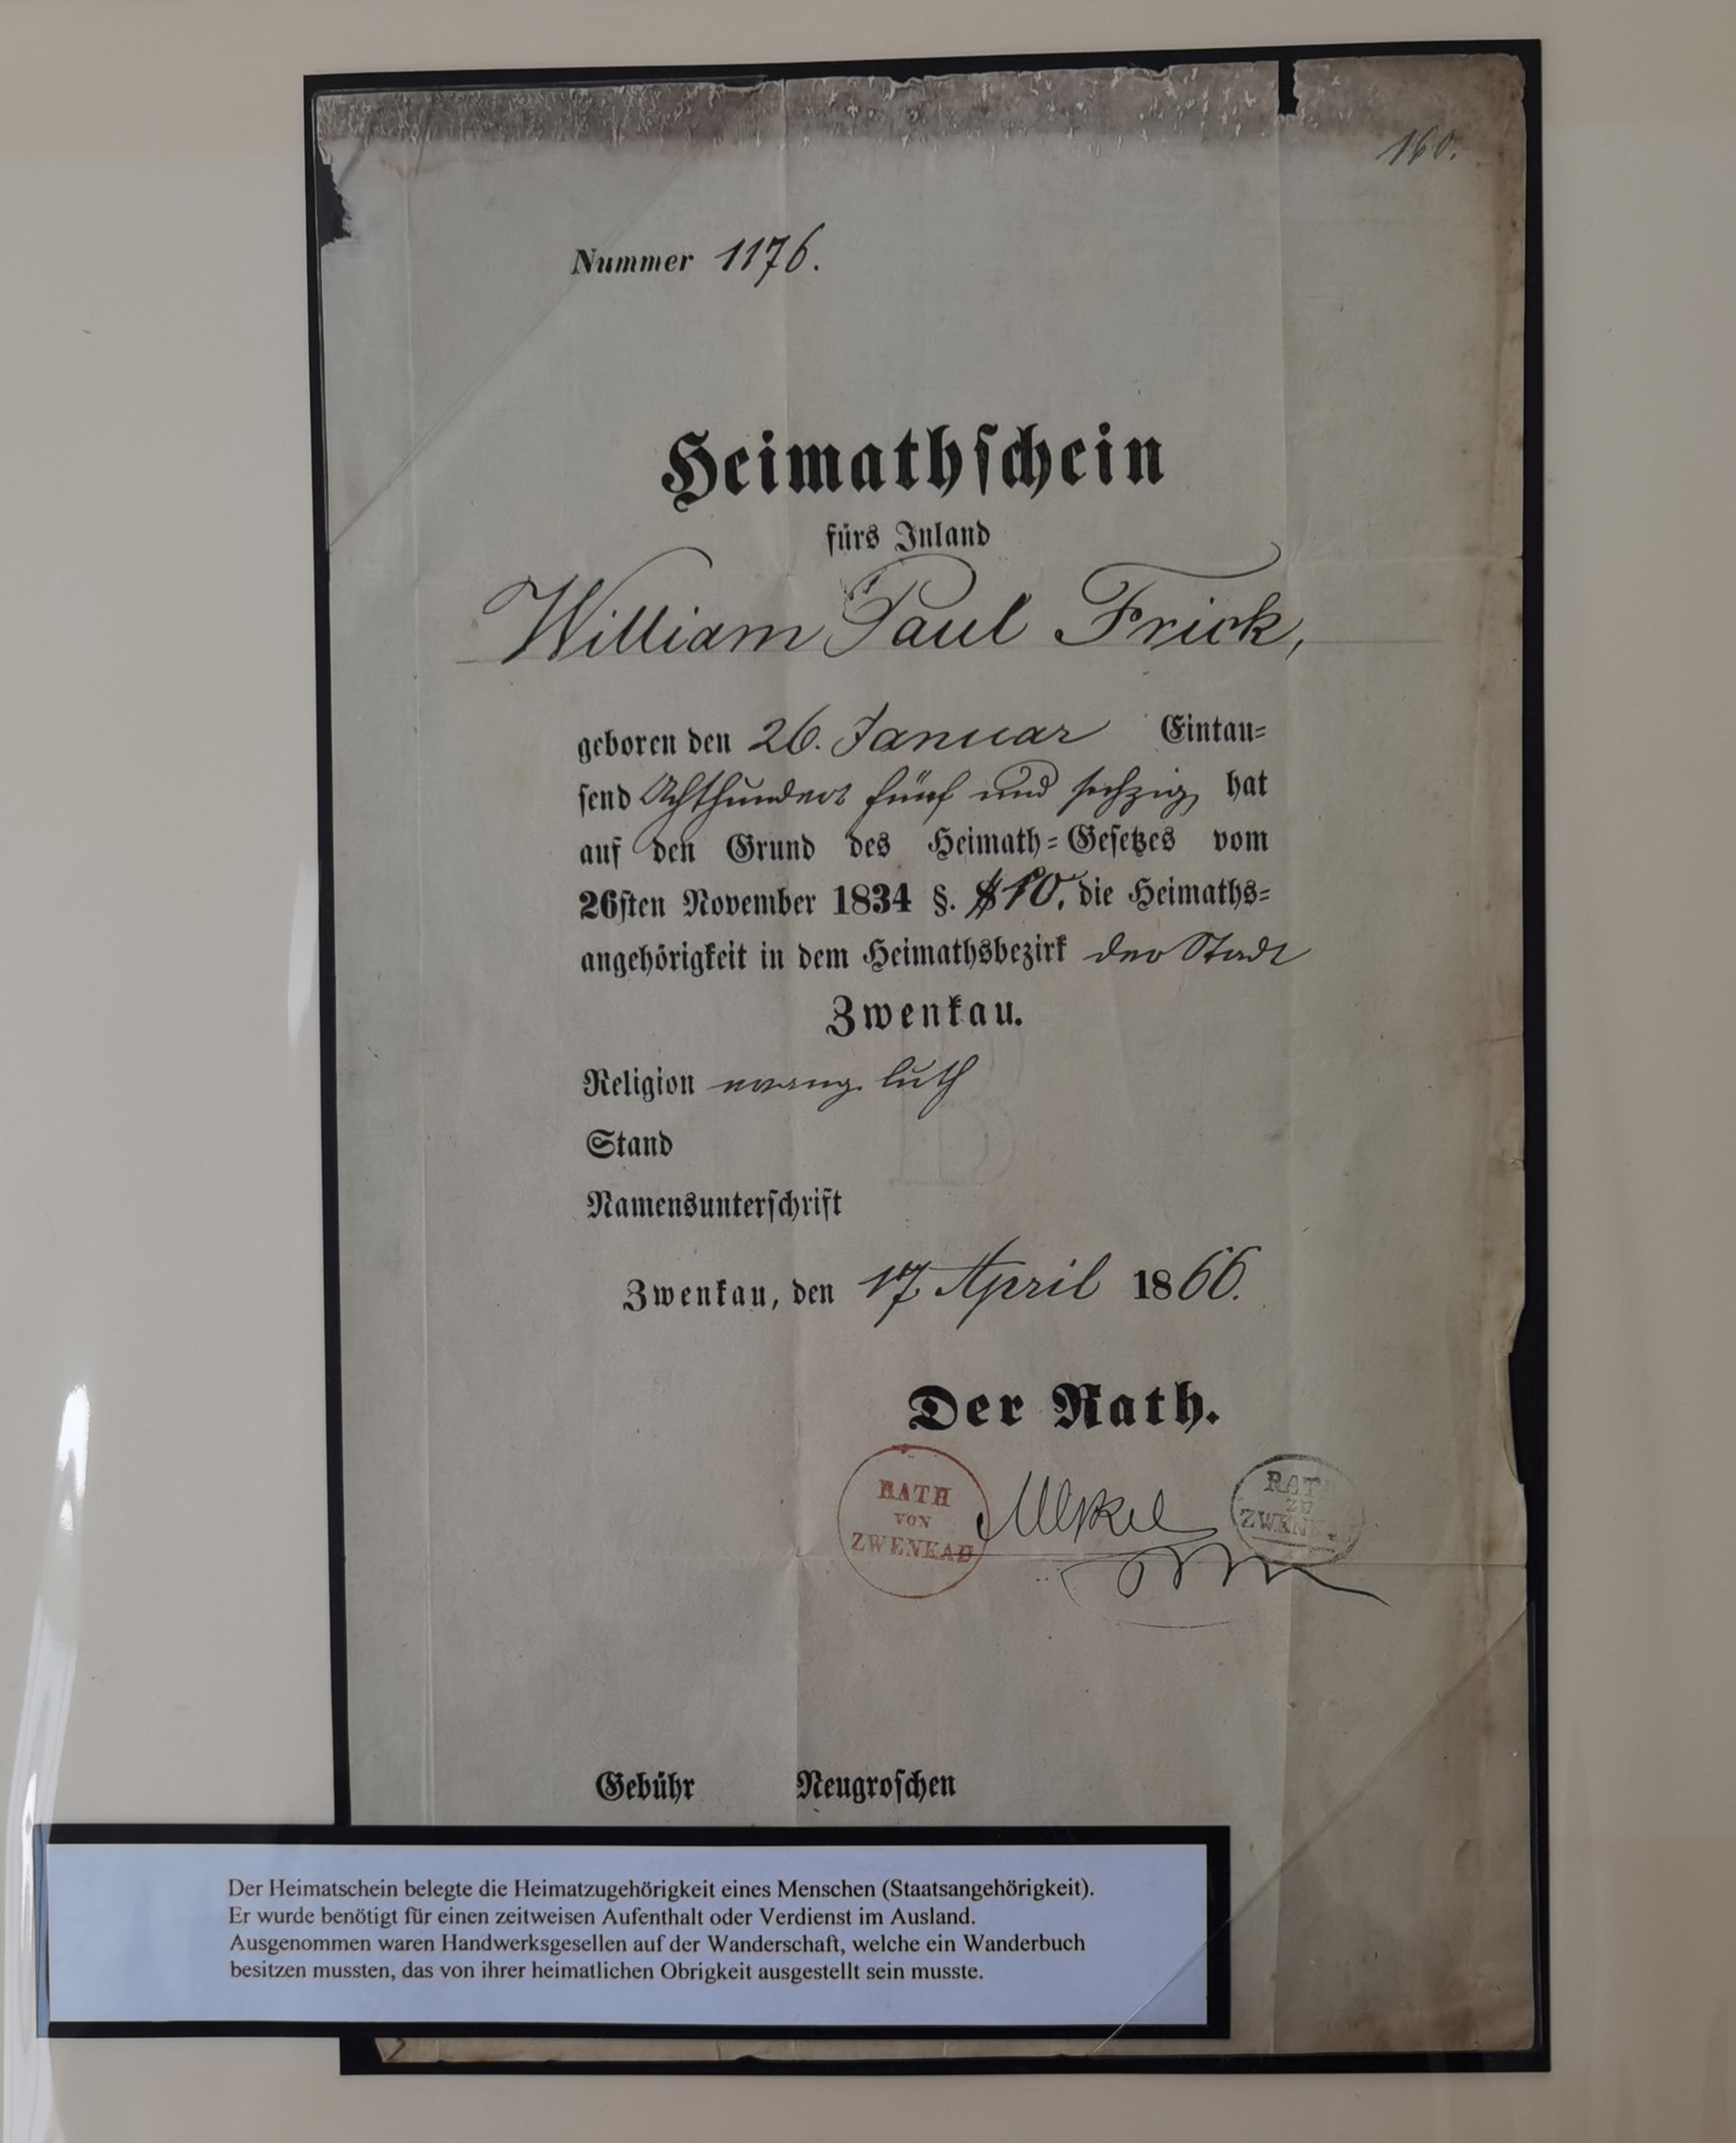 160.
Nummer 1176.
Heimathschein
fürs Inland
William Paul Frick,
geboren den 26. Januar Eintau=
send Achthundert fünf und sechzig hat
auf den Grund des Heimath=Gesetzes vom
26sten November 1834 §. 10. die Heimaths=
angehörigkeit in dem Heimathsbezirk der Stadt
Zwenkau.
Religion evang. luth
Stand
Namensunterschrift
Zwenkau, den 17 April 1866.
Der Rath.
RATH
VON
ZWENKAU
RATH
ZU
ZWENKAU
Gebühr Neugroschen
Der Heimatschein belegte die Heimatzugehörigkeit eines Menschen (Staatsangehörigkeit).
Er wurde benötigt für einen zeitweisen Aufenthalt oder Verdienst im Ausland.
Ausgenommen waren Handwerksgesellen auf der Wanderschaft, welche ein Wanderbuch
besitzen mussten, das von ihrer heimatlichen Obrigkeit ausgestellt sein musste.